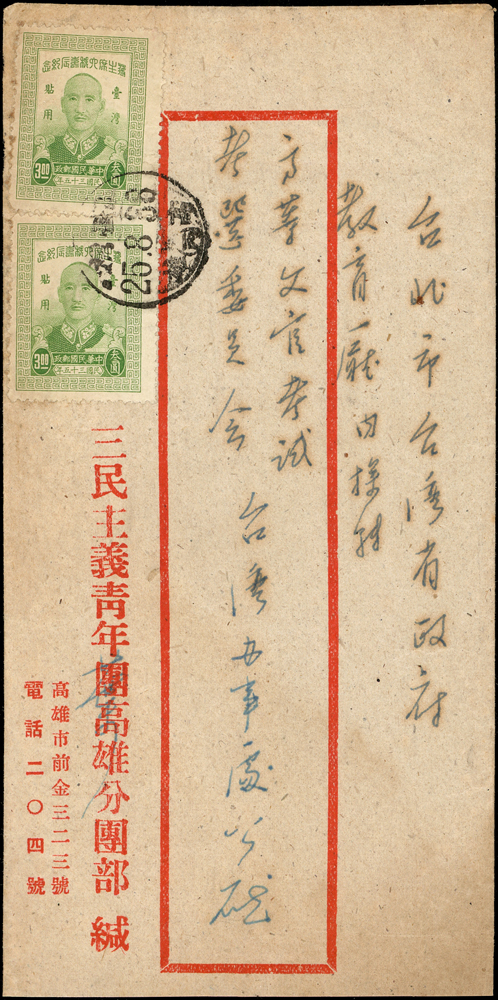 台北市台湾省政府
教育厰内探交
高等文官考试
考選委員会 台湾办事處公啟
三民主義靑年團高雄分團部 緘
高雄市前金三二三號
電話二〇四號
蔣主席六秩壽辰紀念
臺灣
貼用
叁圓
中華民國郵政
3.00
民國三十五年
蔣主席六秩壽辰紀念
臺灣
貼用
叁圓
中華民國郵政
3.00
民國三十五年
25.8.38